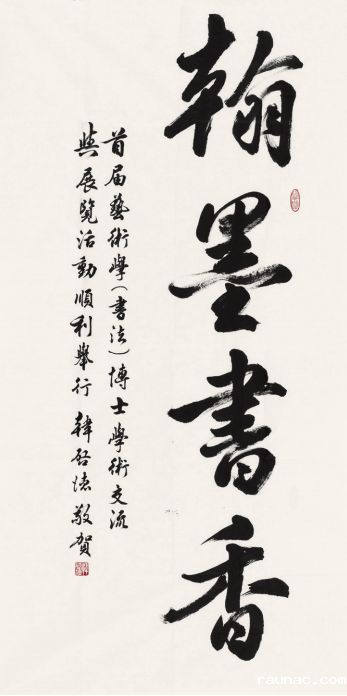 翰墨書香
首届藝術學(書法)博士學術交流
與展覽活動順利舉行 韓啓德敬賀
raunac.com